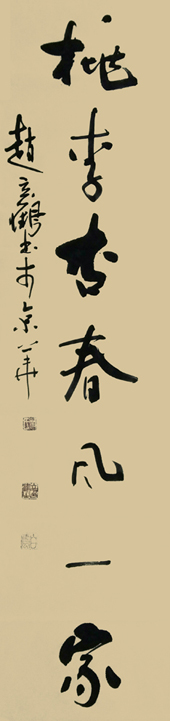 桃李杏春风一家
赵立鹤书于京华